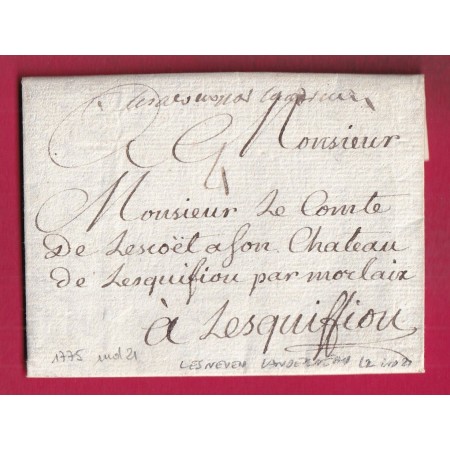 Monsieur
4
Monsieur Le Comte
De Lescoët a son Chateau
de Lesquifiou par morlaix
à Lesquiffiou
1775 ind 21
LESNEVEN LANDERNEAU L2 ind 21